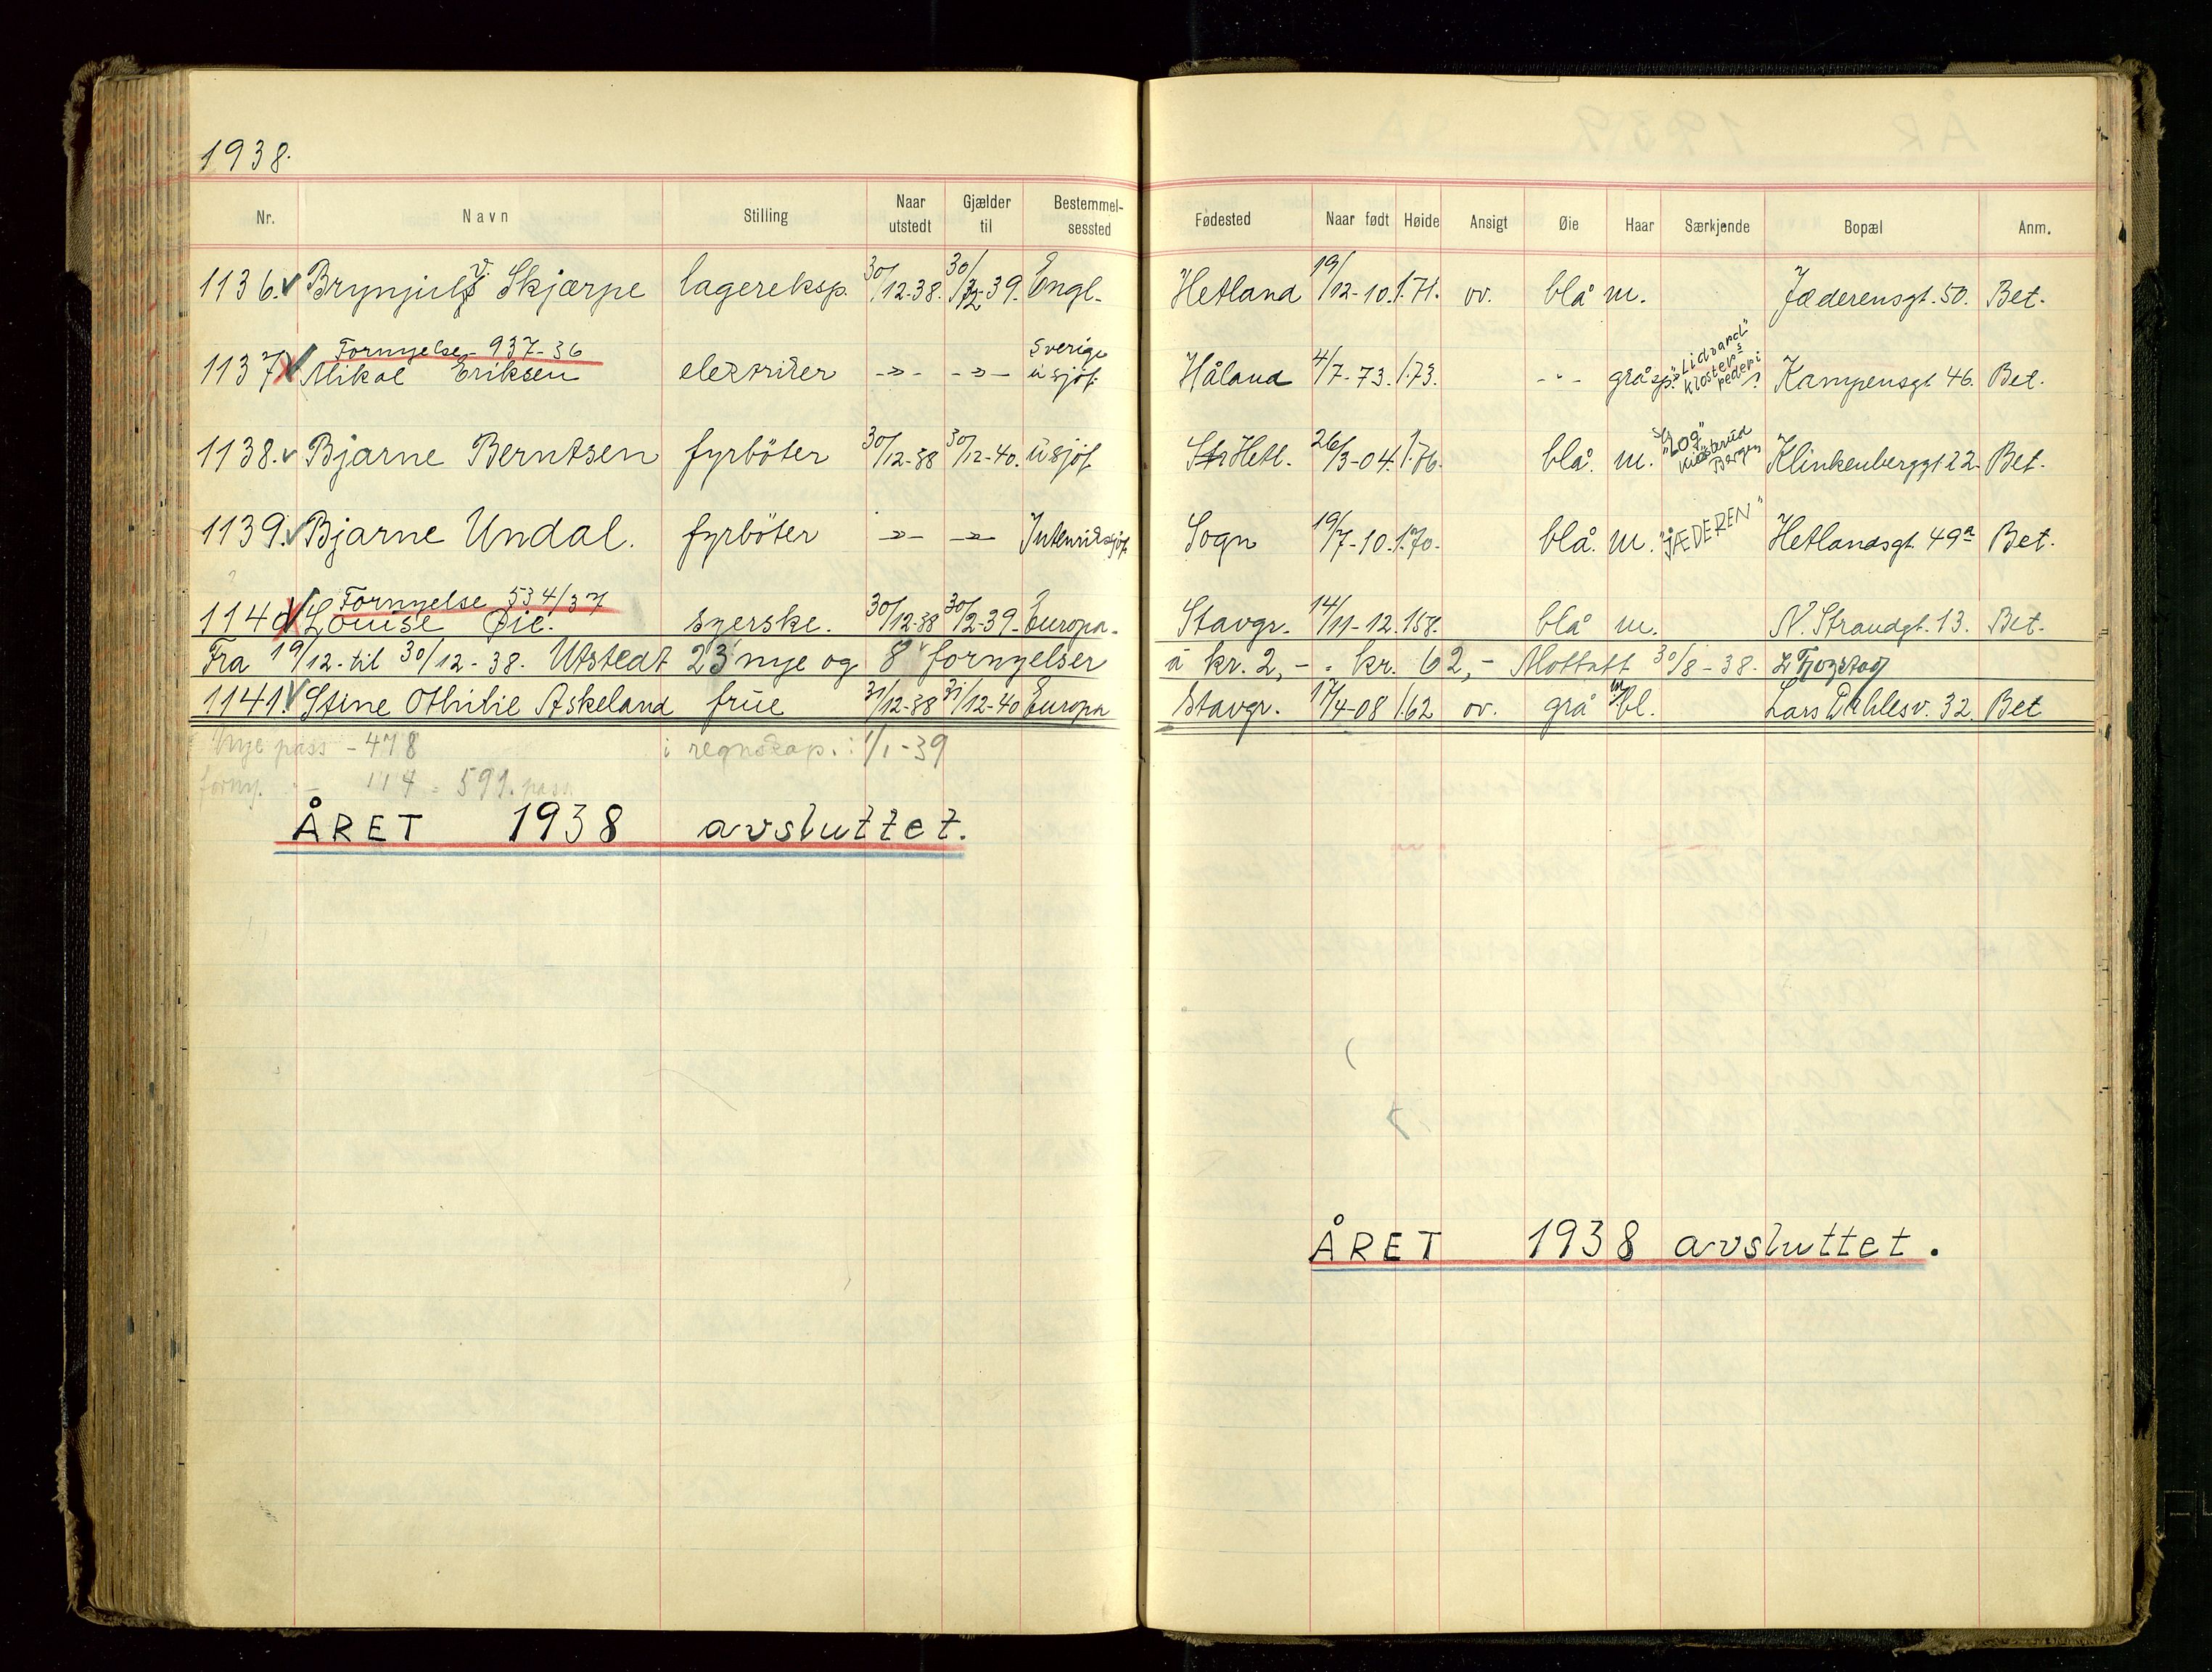 1938.
Nr. Navn Stilling Naar utstedt Gjælder til Bestemmel-sessted Fødested Naar født Høide Ansigt Øie Haar Særkjende Bopæl Anm.
1136. Brynjulv Skjærpe lagereksp. 30/12-38. 30/12-39. Engl. Hetland 19/12-10. 1.71. ov. blå m. Jæderensgt. 50. Bet.
Fornyelse - 937-36
1137 Mikal Eriksen elektriker -»- -»- Sverige u sjøf. Håland 4/7-73. 1.73. -"- gråsp. "Lidvard" Kampensgt 46. Bet.
1138. Bjarne Berntsen fyrböter 30/12-38 30/12-40. u sjøf. Hetl. 26/3-04. 1.76. blå. m. Bergen Klinkenberggt 22. Bet.
1139. Bjarne Undal. fyrböter -»- -»- Sogn 19/7-10. 1.70. blå. m. "JÆDEREN" Hetlandsgt. 49a Bet.
Fornyelse 534/37
1140 Louise Øie. syerske. 30/12-38 30/12-39. Europa. Stavgr. 14/11-12. 158. blå m. N. Strandgt. 13. Bet.
Fra 19/12. til 30/12-38. Utstedt 23 nye og 8 fornyelser à kr. 2,- = kr. 62,- Mottatt 30/8-38.
1141. Stine Othilie Askeland frue 31/12-38 31/12-40 Europa Stavgr. 17/4-08 1.62 ov. grå m/bl. Lars Dahlesv. 32. Bet
Nye pass - 478 i regnskap. : 1/1-39
forny. - 114 = 591. pass.
ÅRET 1938 avsluttet.
ÅRET 1938 avsluttet.